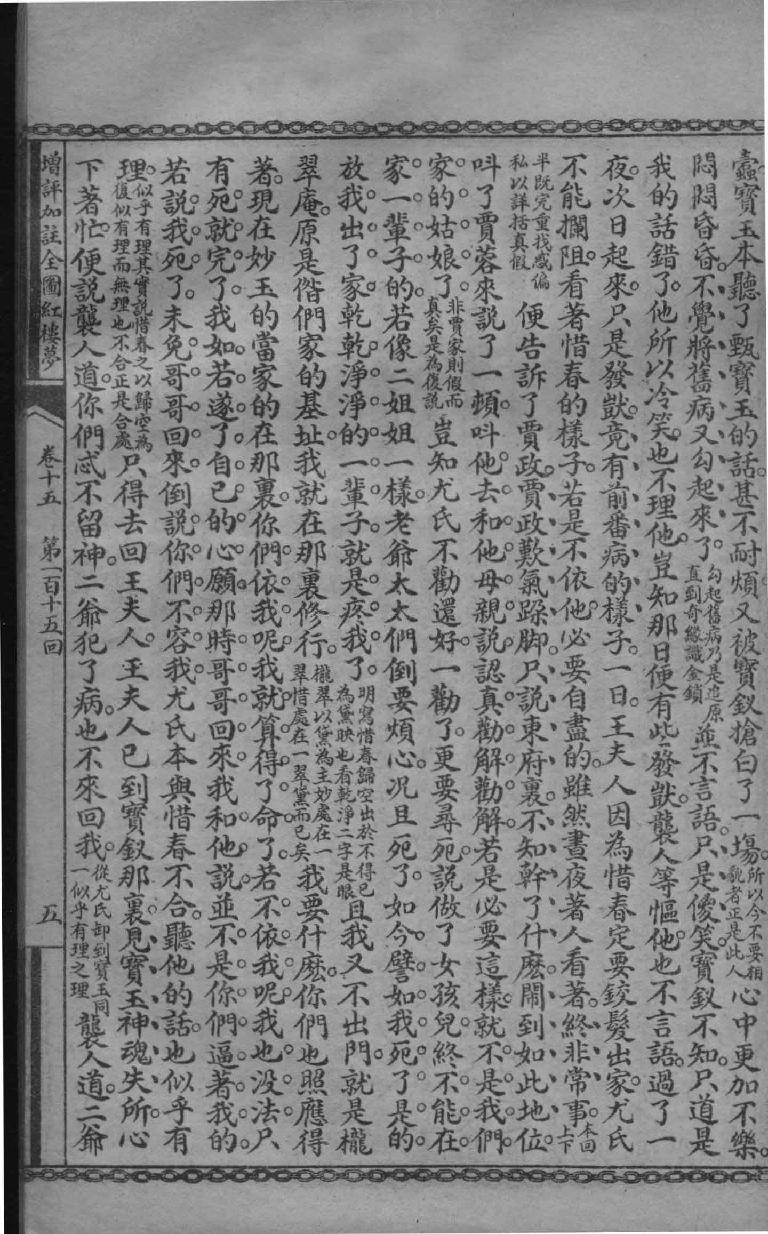 蠹寶玉本聽了甄寶玉的話甚不耐煩又被寶釵搶白了一塲所以今不要相貌者正是此人心中更加不樂
悶悶昏昏不覺將舊病又勾起來了勾起舊病乃是追原直到奇緣識金鎖並不言語只是傻笑寶釵不知只道是
我的話錯了他所以冷笑也不理他豈知那日便有些發獃襲人等慪他也不言語過了一
夜次日起來只是發獃竟有前番病的樣子一日王夫人因為惜春定要鉸髮出家尤氏
不能攔阻看著惜春的樣子若是不依他必要自盡的雖然晝夜著人看著終非常事本回上下
半既完重找感偏私以詳括真假便告訴了賈政賈政歎氣跺脚只說東府裏不知幹了什麽鬧到如此地位
呌了賈蓉來說了一頓呌他去和他母親說認真勸解勸解若是必要這樣就不是我們
家的姑娘了非賈家則假而真矣是為復說豈知尤氏不勸還好一勸了更要尋死說做了女孩兒終不能在
家一輩子的若像二姐姐一樣老爺太太們倒要煩心况且死了如今譬如我死了是的
放我出了家乾乾淨淨的一輩子就是疼我了明寫惜春歸空出於不得已為黛映也看乾淨二字是眼且我又不出門就是櫳
翠庵原是偺們家的基址我就在那裏修行櫳翠以黛為主妙處在一翠惜處在一翠黛而已矣我要什麽你們也照應得
著現在妙玉的當家的在那裏你們依我呢我就算得了命了若不依我呢我也没法只
有死就完了我如若遂了自己的心願那時哥哥回來我和他說並不是你們逼著我的
若說我死了未免哥哥回來倒說你們不容我尤氏本與惜春不合聽他的話也似乎有
理似乎有理其實說惜春之以歸空為復似有理而無理也不合正是合處只得去回王夫人王夫人已到寶釵那裏見寶玉神魂失所心
下著忙便說襲人道你們忒不留神二爺犯了病也不來回我從尤氏卸到寶玉同一似乎有理之理襲人道二爺
增評加註全圖紅樓夢 卷十五 第一百十五回 五